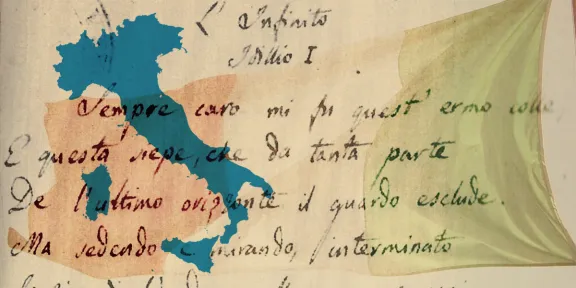 L'Infinito
Idillio I
Sempre caro mi fu quest' ermo colle
E questa siepe, che da tanta parte
De l'ultimo orizzonte il guardo esclude.
Ma sedendo e mirando, interminato